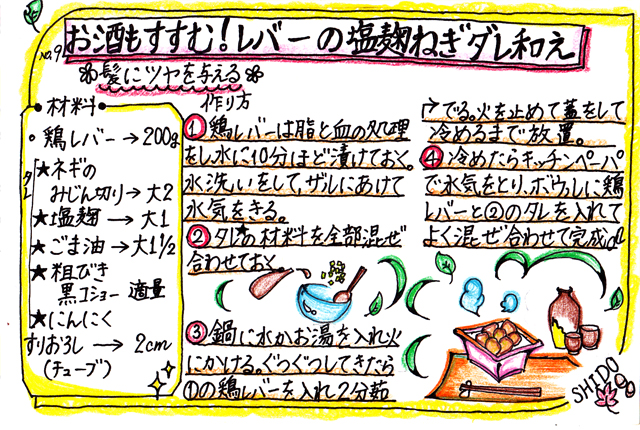 No.9
お酒もすすむ!レバーの塩麹ねぎダレ和え
髪にツヤを与える
材料
・鶏レバー→200g
タレ
★ネギの
みじん切り→大2
★塩麹→大1
★ごま油→大1 1/2
★粗びき
黒コショー 適量
★にんにく
すりおろし→2cm
(チューブ)
作り方
①鶏レバーは脂と血の処理
をし水に10分ほど漬けておく。
水洗いをして、ザルにあけて
水気をきる。
②タレ★の材料を全部混ぜ
合わせておく
③鍋に水かお湯を入れ火
にかける。ぐつぐつしてきたら
①の鶏レバーを入れ2分茹
でる。火を止めて蓋をして
冷めるまで放置。
④冷めたらキッチンペーパー
で水気をとり、ボウルに鶏
レバーと②のタレを入れて
よく混ぜ合わせて完成
SHIDO